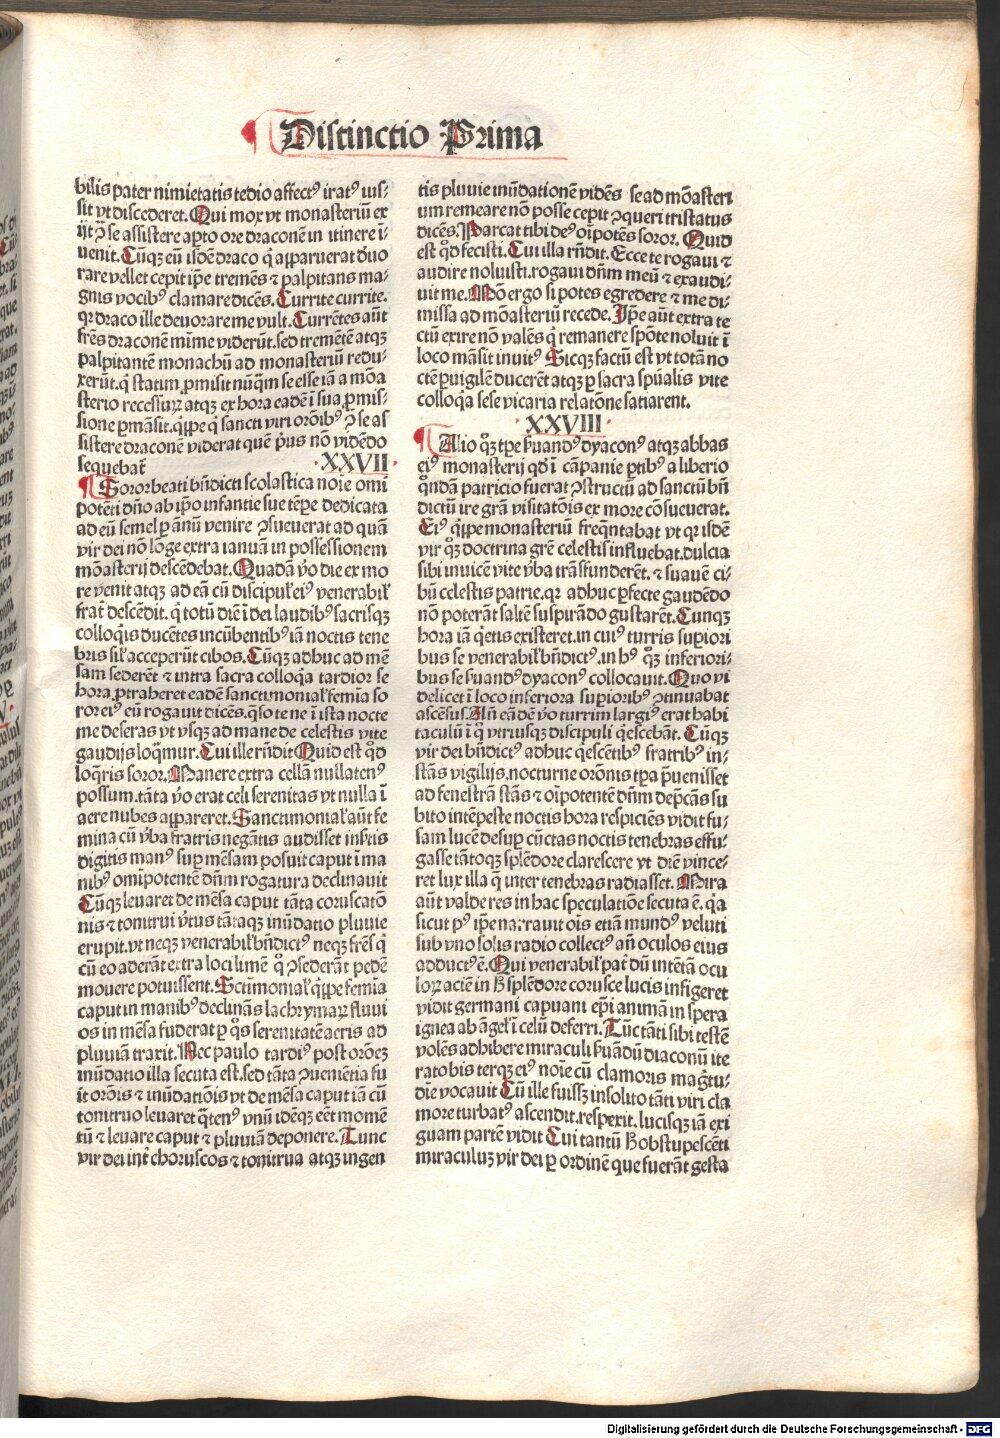 Distinctio Prima
bilis pater nimietatis tedio affectꝰ iratꝰ ius⸗
sit vt discederet. Qui mox vt monasteriū ex
ijt ꝯ̄ se assistere aꝑto ore draconē in itinere ī⸗
uenit. Cūqꝫ eū isdē draco q̄ apparuerat deuo
rare vellet cepit ip̄e tremēs ⁊ palpitans ma⸗
gnis vocibꝰ clamare dicēs. Currite currite.
qꝛ draco ille deuorare me vult. Currētes aūt
frēs draconē mime viderūt. sed tremētē atqꝫ
palpitantē monachū ad monasteriū redu⸗
xerūt. q̇ statim ꝓmisit nūq̄m se esse iā a mōa
sterio recessuꝝ atqꝫ ex hora eadē ī sua ꝓmis⸗
sione ꝑmāsit. q̇ppe q̇ sancti viri orōibꝰ ꝯ̄ se as
sistere draconē viderat quē pͥus nō vidēdo
sequebat᷑
·XXVII·
Soror beati bn̄dicti scolastica noīe omī
potēti dn̄o ab ip̄o infantie sue tēꝑe dedicata
ad eū semel ꝑ ānū venire ꝯsueuerat ad quā
vir dei nō lōge extra ianuā in possessionem
mōasterij descēdebat. Quadā v̄o die ex mo
re venit atqꝫ ad eā cū discipulꝭ eiꝰ venerabil̕
frat᷑ descēdit. q̇ totū diē ī dei laudibꝰ sacrisqꝫ
colloq̇is ducētes incūbentibꝰ iā noctis tene
bris sil̕ acceperūt cibos. Cūqꝫ adhuc ad mē
sam sederēt ⁊ intra sacra colloq̇a tardior se
hora ꝓtraheret eadē sanctimonial̕ femīa so
ror eiꝰ eū rogauit dicēs. q̄so te ne ī ista nocte
me deseras vt vsqꝫ ad mane de celestis vite
gaudijs loq̄mur. Cui ille rn̄dit Quid est q̊d
loq̄ris soror. Manere extra cellā nullatenꝰ
possum. tāta v̄o erat celi serenitas vt nulla ī
aere nubes appareret. Sanctimonial̕ aūt fe
mina cū v̄ba fratris negātis audisset insertis
digitis manꝰ suꝑ mēsam posuit caput ī ma
nibꝰ omīpotentē dn̄m rogatura declinauit
Cūqꝫ leuaret de mēsa caput tāta coruscatō
nis ⁊ tonitrui v̓tus tātaqꝫ inūdatio pluuie
erupit. vt neqꝫ venerabil̕ bn̄dictꝰ neqꝫ frēs q̇
cū eo aderāt extra loci limē q̊ ꝯsederāt pedē
mouere potuissent. Sctīmonial̕ q̇ppe femīa
caput in manibꝰ declinās lachrymaꝝ fluui
os in mēsa fuderat ꝑ q̊s serenitatē aeris ad
pluuiā traxit. Nec paulo tardiꝰ post orōeꝫ
inūdatio illa secuta est. sed tāta ꝯuenīētia fu
it orōis ⁊ inūdatiōis vt de mēsa caput iā cū
tonitruo leuaret q̄tenꝰ vnū idēqꝫ eēt momē
tū ⁊ leuare caput ⁊ pluuiā deponere. Tunc
vir dei int̓ choruscos ⁊ tonitrua atqꝫ ingen
tis pluuie inūdationē vidēs se ad mōasteri
um remeare nō posse cepit ꝯqueri tristatus
dicēs. Parcat tibi deꝰ oīpotēs soror. Quid
est q̊d fecisti. Cui illa rn̄dit. Ecce te rogaui ⁊
audire noluisti. rogaui dn̄m meū ⁊ exaudi⸗
uit me. Mō ergo si potes egredere ⁊ me di⸗
missa ad mōasteriū recede. Ip̄e aūt extra te
ctū exire nō valēs q̇ remanere spōte noluit ī
loco māsit inuitꝰ Sicqꝫ factū est vt totā no
ctē ꝑuigilē ducerēt atqꝫ ꝑ sacra spūalis vite
colloq̇a sese vicaria relatōne satiarent.
·XXVIII·
Alio q̊qꝫ tꝑe ẜuandꝰ dyaconꝰ atqꝫ abbas
eiꝰ monasterij qd̓ ī cāpanie ꝑtibꝰ a liberio
q̊ndā patricio fuerat ꝯstructū ad sanctū bn̄
dictū ire grā visitatōis ex more cōsueuerat.
Eiꝰ q̇ppe monasteriū freq̄ntabat vt qꝛ isdē
vir q̊qꝫ doctrina grē celestis influebat. dulcia
sibi inuicē vite v̄ba trāsfunderēt. ⁊ suauē ci⸗
bū celestis patrie. qꝛ adhuc ꝑfecte gaudēdo
nō poterāt saltē suspirādo gustarēt. Cunqꝫ
hora iā q̇etis existeret. in cuiꝰ turris suꝑiori
bus se venerabil̕ bn̄dictꝰ. in hꝰ q̊qꝫ inferiori⸗
bus se ẜuandꝰ dyaconꝰ collocauit. Quo vi
delicet ī loco inferiora suꝑioribꝰ ꝯtinuabat
ascēsus. Añ eādē v̄o turrim largiꝰ erat habi
taculū ī q̊ vtriusqꝫ discipuli q̇escebāt. Cūqꝫ
vir dei bn̄dictꝰ adhuc q̇escētibꝰ fratribꝰ in⸗
stās vigilijs. nocturne orōnis tꝑa p̄uenisset
ad fenestrā stās ⁊ oīpotentē dn̄m dep̄cās su
bito intēpeste noctis hora respiciēs vidit fu⸗
sam lucē desuꝑ cūctas noctis tenebras effu⸗
gasse tātoqꝫ splēdore clarescere vt diē vince⸗
ret lux illa q̄ inter tenebras radiasset. Mira
aūt valde res in hac speculatiōe secuta ē. q̄a
sicut pꝰ ip̄e narrauit oīs etiā mundꝰ veluti
sub vno solis radio collectꝰ añ oculos eius
adductꝰ ē. Qui venerabil̕ pat᷑ dū intētā ocu
loꝝ aciē in h̄ splēdore corusce lucis infigeret
vidit germani capuani ep̄i animā in spera
ignea ab āgel̕ ī celū deferri. Tūc tāti sibi testē
volēs adhibere miraculi ẜuādū diaconū ite
rato bis terqꝫ eiꝰ noīe cū clamoris mag̓tu⸗
dīe vocauit Cū ille fuissꝫ insolito tāti viri cla
more turbatꝰ ascendit. respexit. lucisqꝫ iā exi
guam partē vidit Cui tantū h̄ obstupescēti
miraculuꝫ vir dei ꝑ ordinē que fuerāt gesta
Digitalisierung gefördert durch die Deutsche Forschungsgemeinschaft - DFG